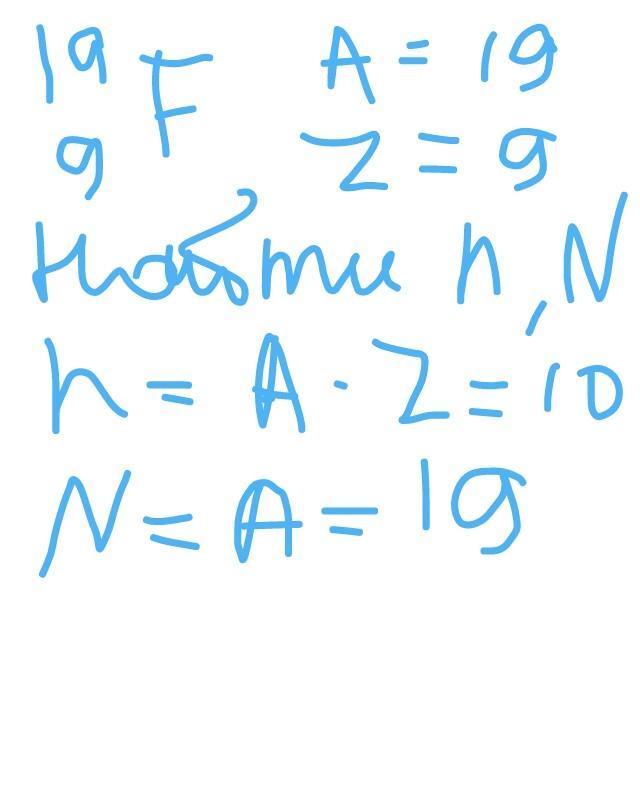 19 F A = 19
9 Z = 9
Найти n, N
n = A - Z = 10
N = A = 19